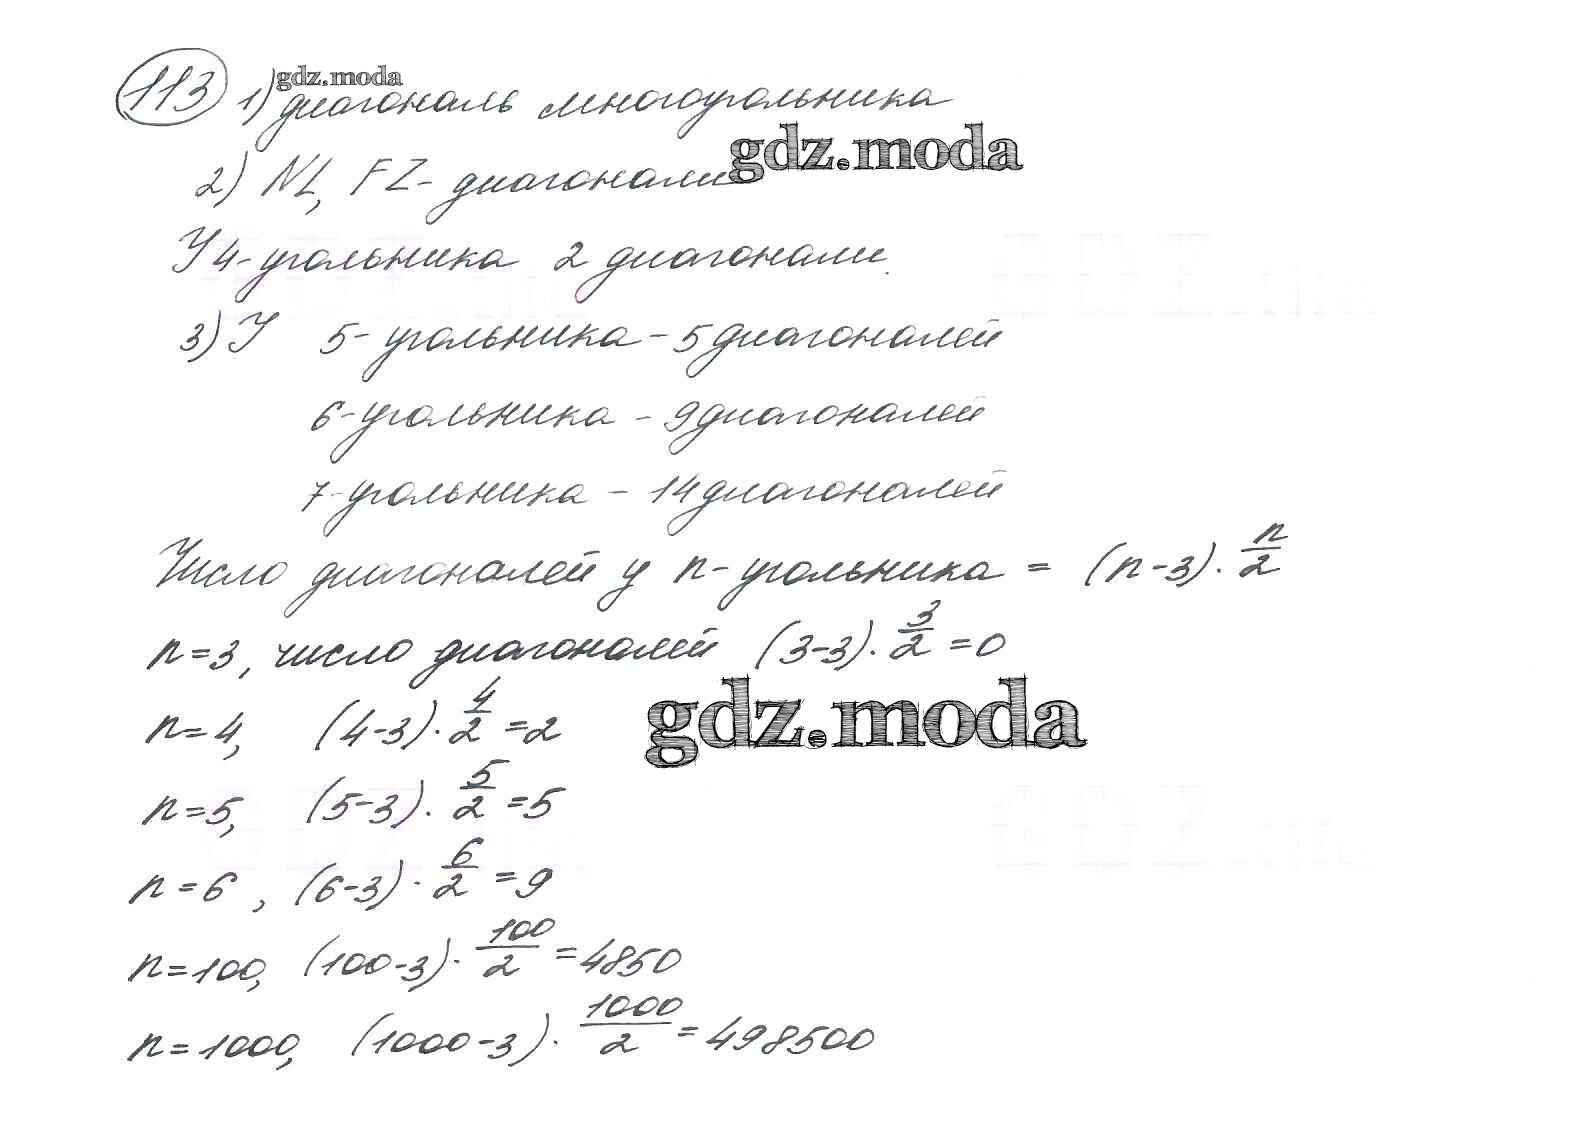 113 1) диагональ многоугольника
gdz.moda
gdz.moda
2) NL, FZ - диагонали
У 4-угольника 2 диагонали.
3) У 5-угольника - 5 диагоналей
6-угольника - 9 диагоналей
7-угольника - 14 диагоналей
Число диагоналей у n-угольника = (n-3)·n/2
n=3, число диагоналей (3-3)·3/2=0
n=4, (4-3)·4/2=2
gdz.moda
n=5, (5-3)·5/2=5
n=6, (6-3)·6/2=9
n=100, (100-3)·100/2=4850
n=1000, (1000-3)·1000/2=498500